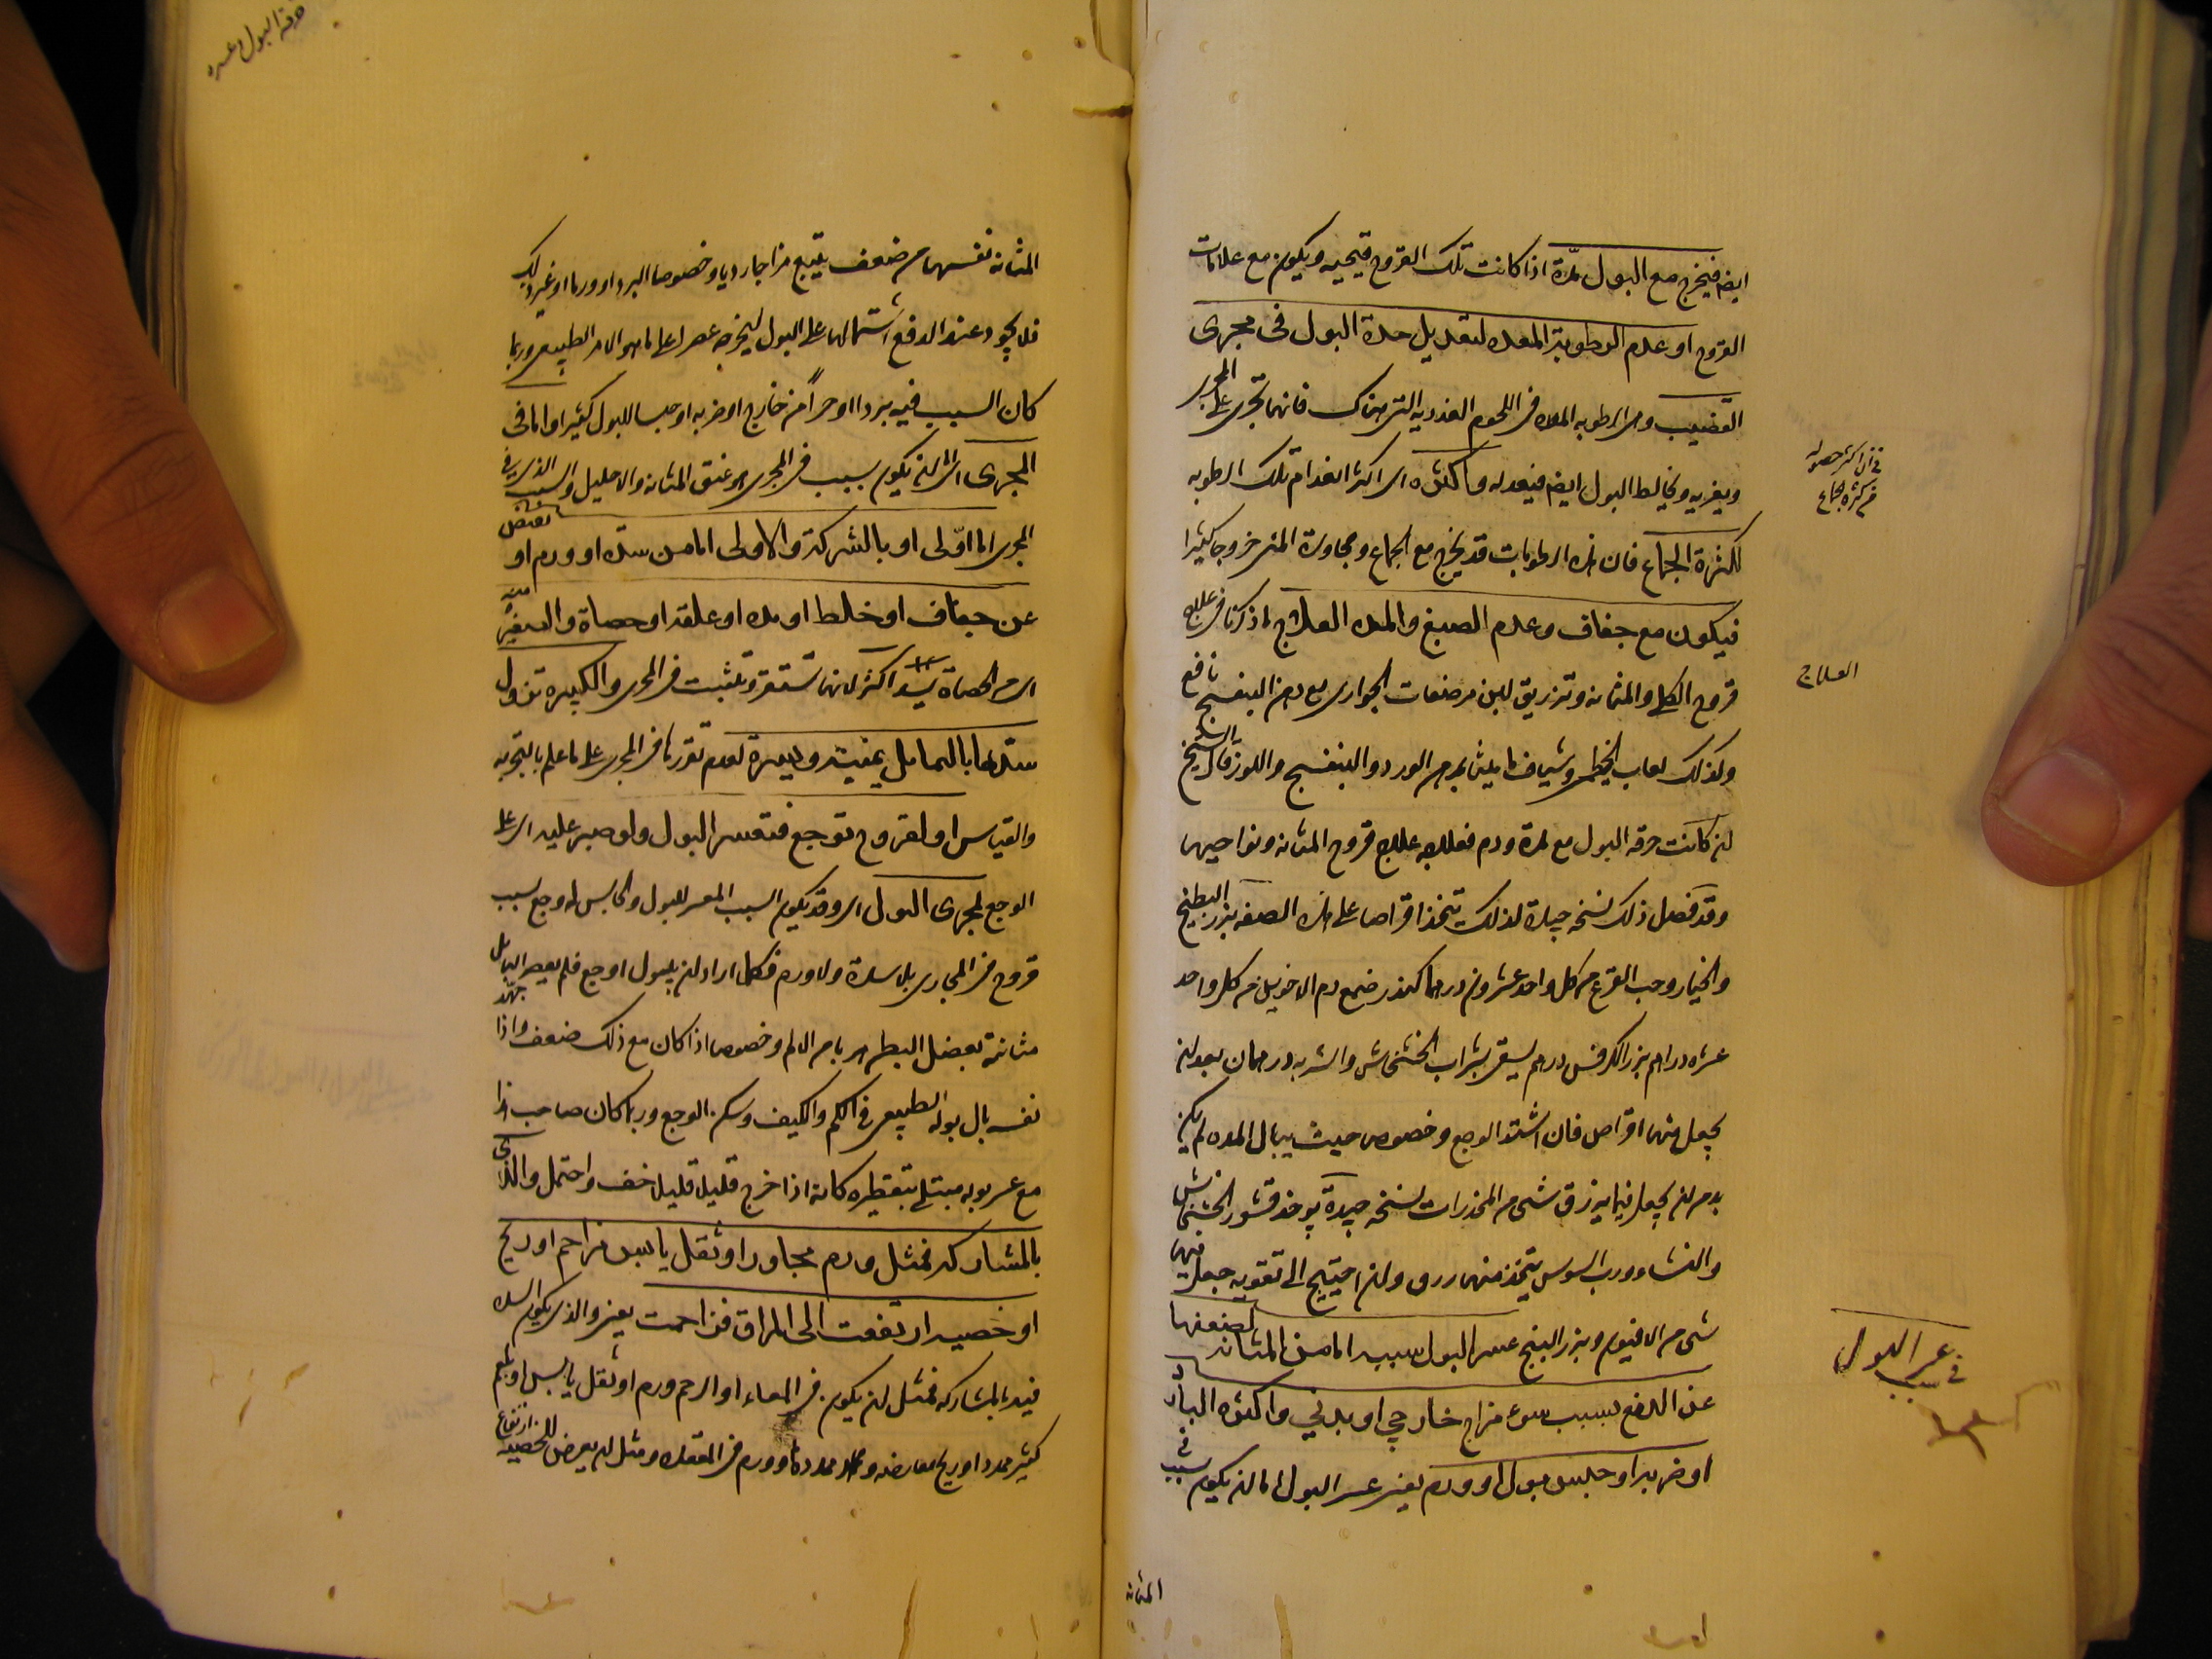 ايضا فيخرج مع البول مدة اذا كانت تلك القروح قيحيه ويكون مع علامات
القروح او عدم الرطوبة المعده لتعديل حدة البول فى مجرى
القضيب وهى الرطوبه المعده فى اللحوم الغدديه التى هناك فانها تجرى على المجرى
ويغريه ويخالط البول ايضا فيعدله واكثره اى اكثر انعدام تلك الرطوبه
لكثرة الجماع فان هذه الرطوبات قد تخرج مع الجماع ومجاورة المنى خروجا كثيرا
فيكون مع جفاف وعدم الصبغ والمده العلاج ما ذكرنا فى علاج
قروح الكلى والمثانه وتزريق لبن مرضعات الجوارى مع دهن البنفسج نافع
وكذلك لعاب الخطمى وشياف ماميثا بدهن الورد والبنفسج واللوز قال الشيخ
ان كانت حرقه البول مع مدة ودم فعلاجه علاج قروح المثانه ونواحيها
وقد فصل ذلك نسخه جيدة لذلك يتخذ اقراصا على هذه الصفه بزر البطيخ
والخيار وحب القرع من كل واحد عشرون درهما كندر صمغ دم الاخوين من كل واحد
عشره دراهم بزر الكرفس درهم يسقى بشراب الخشخاش والشربه درهمان بعد ان
يجعل منها اقراص فان اشتد الوجع وخصوصا حيث يبال المده لم يكن
بد من ان يجعل فيما يزرق شى من المخدرات نسخه جيدة يوخذ قشور الخشخاش
والنشا ورب السوس يتخذ منها زرق وان احتيج الى تقويه جعل فيها
شى من الافيون وبزر البنج عسر البول سببه اما من المثانه لضعفها
عن الدفع بسبب سوء مزاج خارجي او بدني واكثره البارد
او ضربه او حبس بول او ورم يعنى عسر البول اما ان يكون سبب فى
المثانه
فى ان اكثر حصوله
من كثرة الجماع
العلاج
فى سبب
عسر البول
حرقه البول وعسره
المثانه نفسها من ضعف يتبع مزاجا رديا وخصوصا البرد او ورما او غير ذلك
فلا يجود عند الدفع اشتمالها على البول ليخرجه عصرا على ما هو الامر الطبيعى وربما
كان السبب فيه بردا او حرا من خارج او ضربه او حبسا للبول كثيرا واما فى
المجرى اى اما ان يكون بسبب فى المجرى هو عنق المثانه والاحليل والسبب الذى فى
المجرى اما اولى او بالشركة والاولى اما من سده او ورم او
عن جفاف او خلط او مده او علقه او حصاة والصغير منه
اى من الحصاة يسد اكثر لانها تستقر وتثبت فى المجرى والكبيره تزول
سدتها بالتمايل يمنة ويسرة لعدم تقررها فى المجرى على ما علم بالتجربه
والقياس او لقروح توجع فتعسر البول ولو صبر عليه اى على
الوجع لمجرى البول اى وقد يكون السبب المعسر للبول والحابس له وجع بسبب
قروح فى المجارى بلا سدة ولا ورم فكلما اراد ان يبول اوجع فلم يعصر البايل
مثانته بعضل البطن هربا من الالم وخصوصا اذا كان مع ذلك ضعف واذا جهد
نفسه بال بوله الطبيعى فى الكم والكيف وسكن الوجع وربما كان صاحب هذا
مع عسر بوله مبتلى بتقطيره كانه اذا خرج قليلا قليلا خف واحتمل والذى
بالمشاركه فمثل ورم مجاور او ثقل يابس مزاحم او ريح
او خصيه ارتفعت الى المراق فزاحمت يعنى والذى يكون السده
فيه بالمشاركه فمثل ان يكون فى المعاء او الرحم ورم او ثقل يابس او بلغم
كثير ممدد او ريح معارضه ممدده او ورم فى المقعده ومثل ان يعرض للخصيه ارتفاع